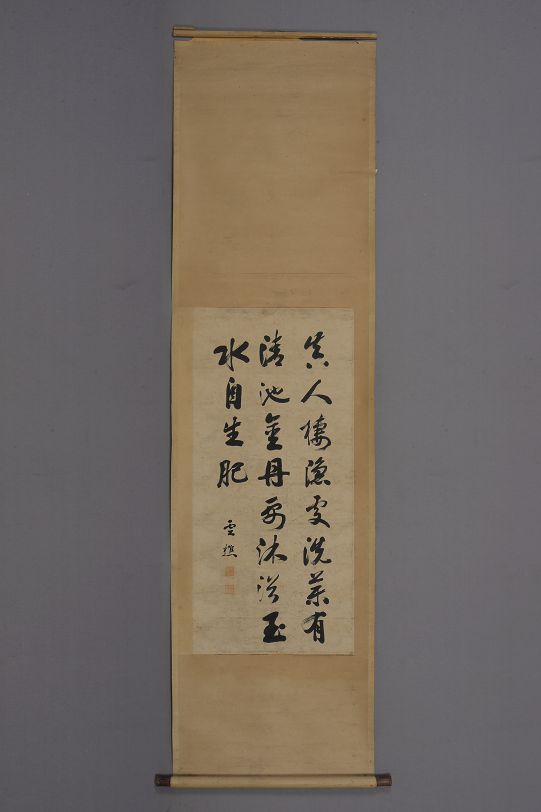 真人棲隱處洗藥有
清池金丹要沐浴玉
水自生肥
雲樵